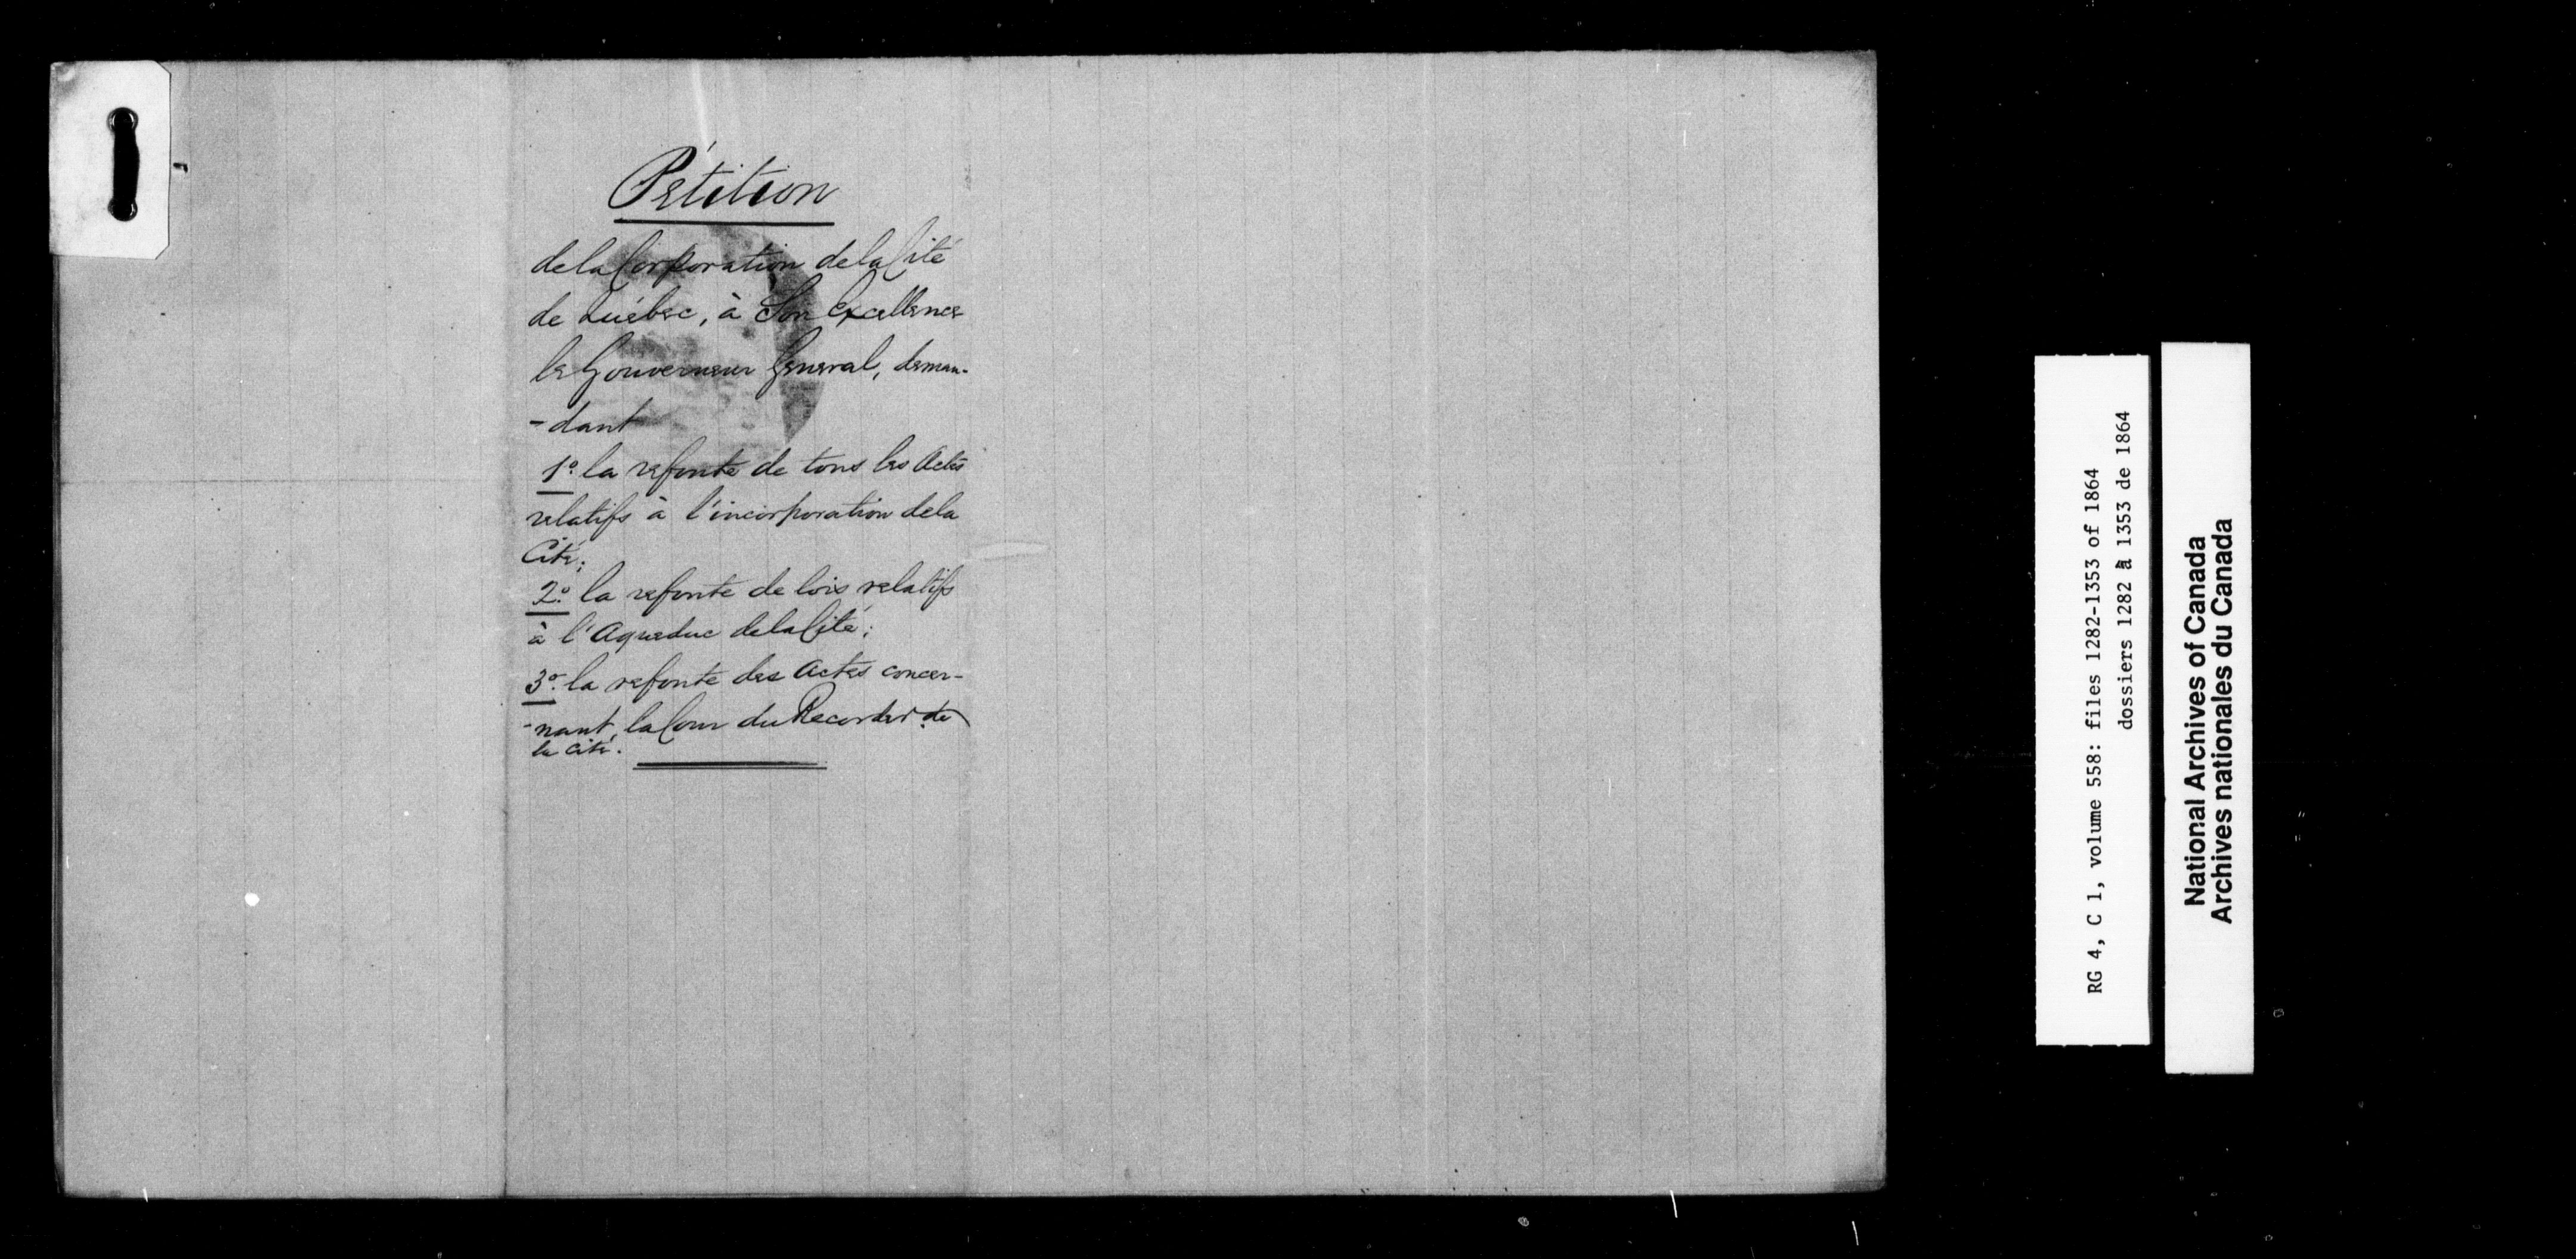 Pétition
de la Corporation de la Cité
de Québec, à Son Excellence
le Gouverneur General, deman-
-dant
1º. la refonte de tous les Actes
relatifs à l'incorporation de la
Cité;
2º. la refonte de lois relatifs
à l'Aqueduc de la Cité;
3º. la refonte des Actes concer-
-nant, la Cour du Recorder de
la Cité.
RG 4, C 1, volume 558: files 1282-1353 of 1864
dossiers 1282 à 1353 de 1864
National Archives of Canada
Archives nationales du Canada